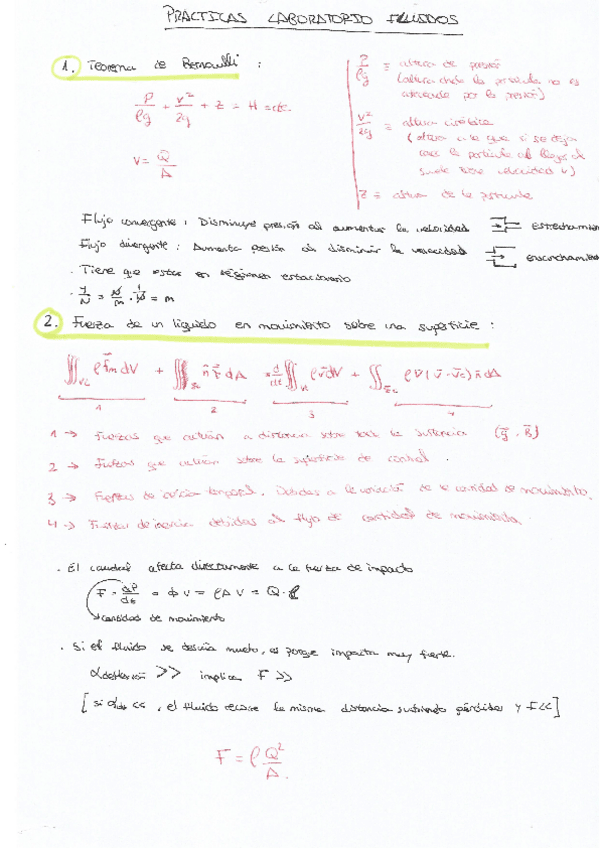 PRACTICAS LABORATORIO FLUIDOS
1. Teorema de Bernoulli :
P/ρg + v²/2g + z = H = cte.
v = Q/A
P/ρg ≡ altura de presión
(altura donde la partícula no es
por la presión)
v²/2g ≡ altura cinética
(altura a la que si se deja
caer la partícula al llegar al
suelo tiene velocidad v)
z ≡ altura de la partícula
Flujo convergente : Disminuye presión al aumentar la velocidad estrechamiento
Flujo divergente : Aumenta presión al disminuir la velocidad ensanchamiento
· Tiene que estar en régimen estacionario
· J/N = N/m · 1/N = m
2. Fuerza de un líquido en movimiento sobre una superficie :
∭vc ρ f̄m dV + ∭sc n̄ τ̄ dA = d/dt ∭vc ρ v̄ dV + ∬sc ρ v̄ (v̄ - v̄c) n̄ dA
1 2 3 4
1 → Fuerzas que actúan a distancia sobre toda la sustancia (ḡ, B̄)
2 → Fuerzas que actúan sobre la superficie de control.
3 → Fuerzas de inercia temporal. Debidas a la variación de la cantidad de movimiento.
4 → Fuerzas de inercia debidas al flujo de cantidad de movimiento.
· El caudal afecta directamente a la fuerza de impacto
F = dP/dt = ϕ v = ρ A v = Q · ρ
→ cantidad de movimiento
· Si el fluido se desvía mucho, es porque impacta muy fuerte.
α deflexión >> implica F >>
[ si α <<, el fluido recorre la misma distancia sufriendo pérdidas y F << ]
F = ρ Q²/A.